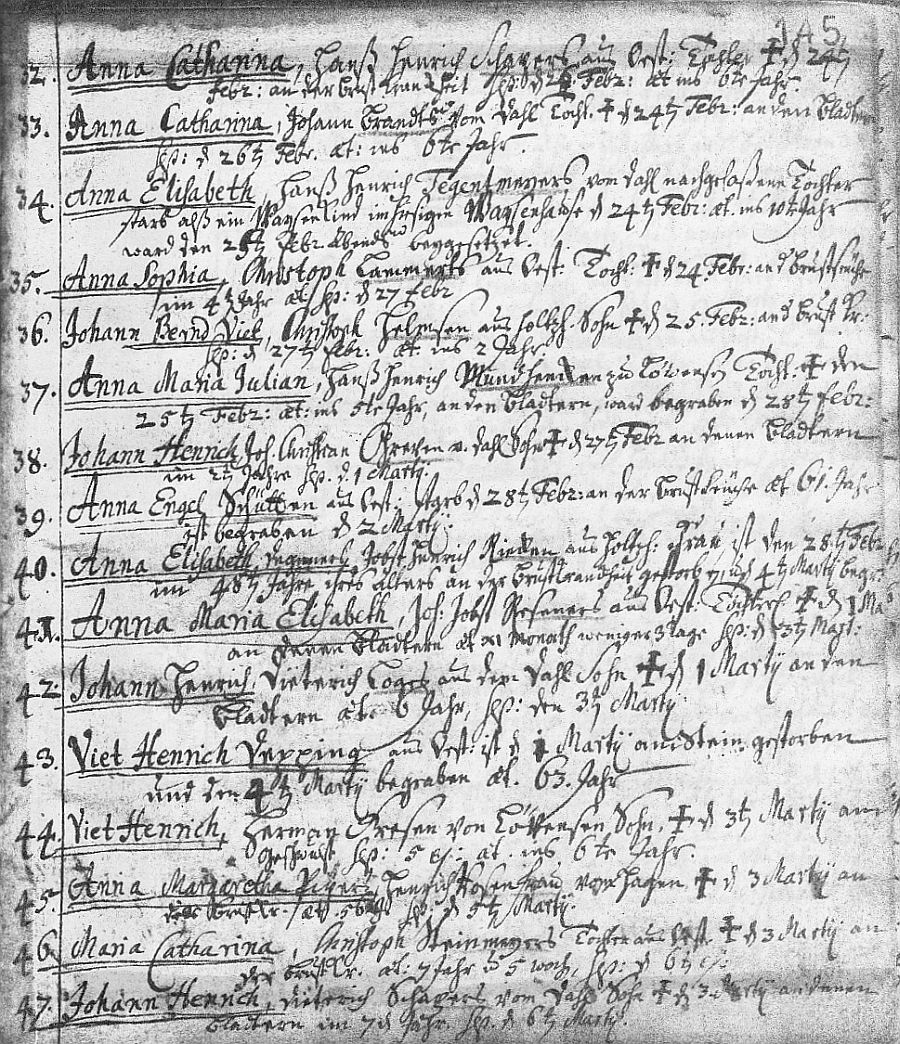 145
32. Anna Catharina, Hanß Henrich Schapers aus Oest: Tochter ✝ d 24t
Febr: an der Brust Kranckheit sep: d 26 Febr: æt ins 6te Jahr.
33. Anna Catharina, Johann Brandts vom Dahl Tocht. ✝ d 24t Febr: an den Bladtern
sep: d 26t Febr. æt: ins 6te Jahr.
34. Anna Elisabeth, Hanß Henrich Tegentmeyers vom Dahl nachgelaßene Tochter
starb alß ein Waysenkind im hiesigen Waysenhause d 24t Febr: æt. ins 10te Jahr
ward den 25t Febr Abends beygesetzet.
35. Anna Sophia, Christoph Lammerts aus Oest: Tocht: ✝ d 24 Febr: an d Brustseuche
im 4t Jahr æt sep: d 27 Febr
36. Johann Bernd Viet, Christoph Helmsen aus Holtzh. Sohn ✝ d 25. Febr: an d Brust Kr:
sep: d 27t Febr: æt. ins 2 Jahr.
37. Anna Maria Julian, Hanß Henrich Mundhencken zu Löwensen Tocht: ✝ den
25t Febr: æt: ins 5te Jahr, an den Bladtern, ward begraben d 28t Febr:
38. Johann Henrich, Joh. Christian Greven v. Dahl Sohn ✝ d 27t Febr an denen Bladtern
im 2t Jahre sep. d. 1 Marty.
39. Anna Engel Schütten aus Oest: starb d 28t Febr: an der Brustseuche æt 61. Jahr
ist begraben d 2 Marty.
40. Anna Elisabeth, Jobst Henrich Rieken aus Holtzh: Frau ist den 28t Febr
im 48t Jahre ihres Alters an der Brustkranckheit gestorben, und d 4t Marty begr:
41. Anna Maria Elisabeth, Joh: Jobst Reseners aus Oest: Töchterl. ✝ d 1 Ma
an denen Bladtern æt Monath weniger 3 tage sep: d 3t Mart:
42 Johann Henrich, Dieterich Loges aus dem Dahl Sohn ✝ d 1 Marty an den
Bladtern æt. 6 Jahr, sep: den 3t Marty
43. Viet Henrich Depping aus Oest: ist d 1 Marty am Stein gestorben
und den 4t Marty begraben æt. 63. Jahr
44. Viet Henrich, Herman Gresen von Löwensen Sohn. ✝ d 3t Marty am
Geschwulst sep: 5 æt. ins 6te Jahr.
45. Anna Margaretha, Henrich Frau von Hagen ✝ d 3 Marty an
der Brust Kr. æt. 56 sep: d 5t Marty.
46. Maria Catharina, Christoph Steinmeyers Tochter aus Oest. ✝ d 3 Marty an
der Brust Kr. æt. 7 Jahr u 5 woch, sep: d 6t
47. Johann Henrich, Dieterich Schapers vom Dahl Sohn ✝ d 3 Marty an denen
Bladtern im 7d Jahr. sep. d 6t Marty.